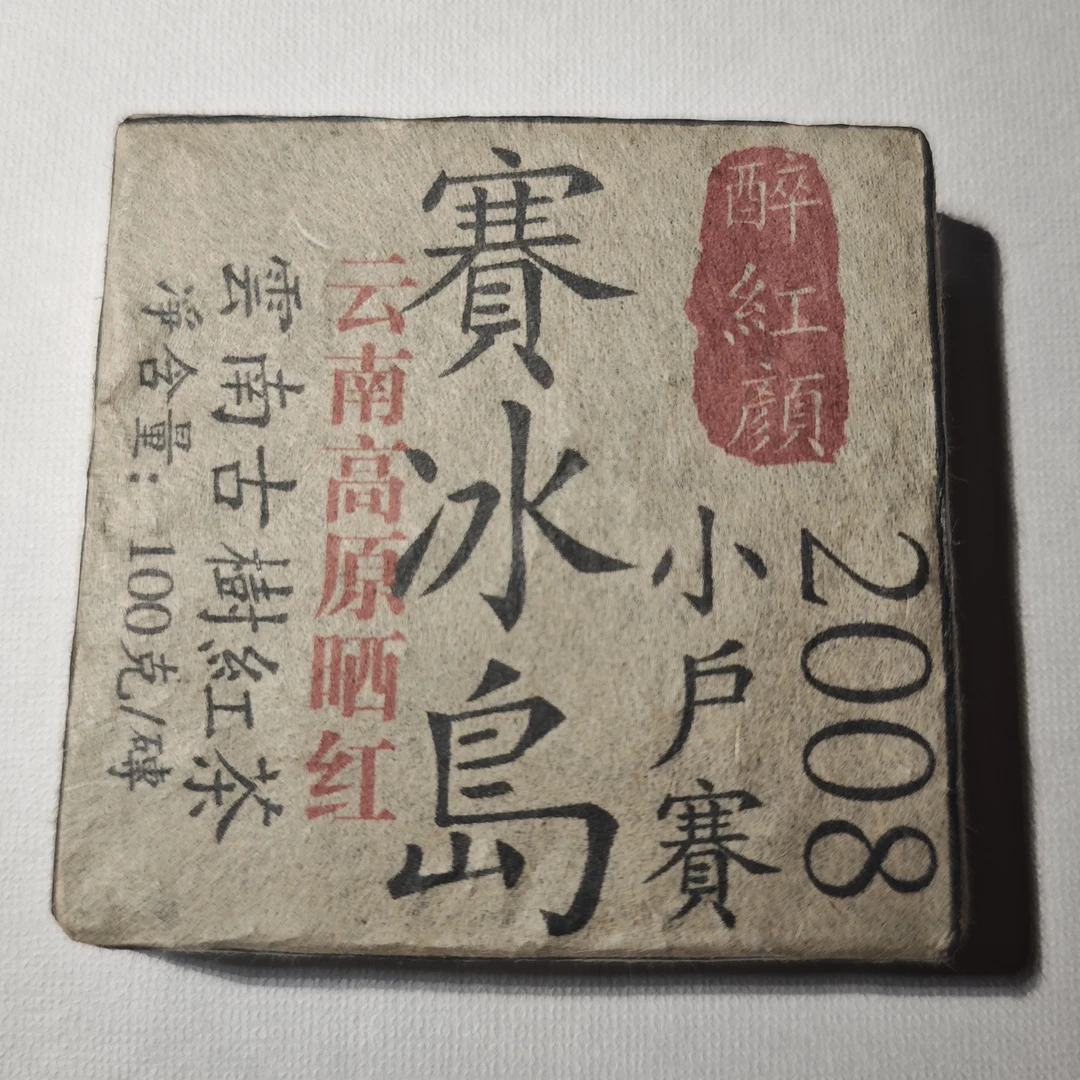 醉紅顔
2008
小戶賽
賽冰島
云南高原晒红
雲南古樹紅茶
淨含量:100克/磚